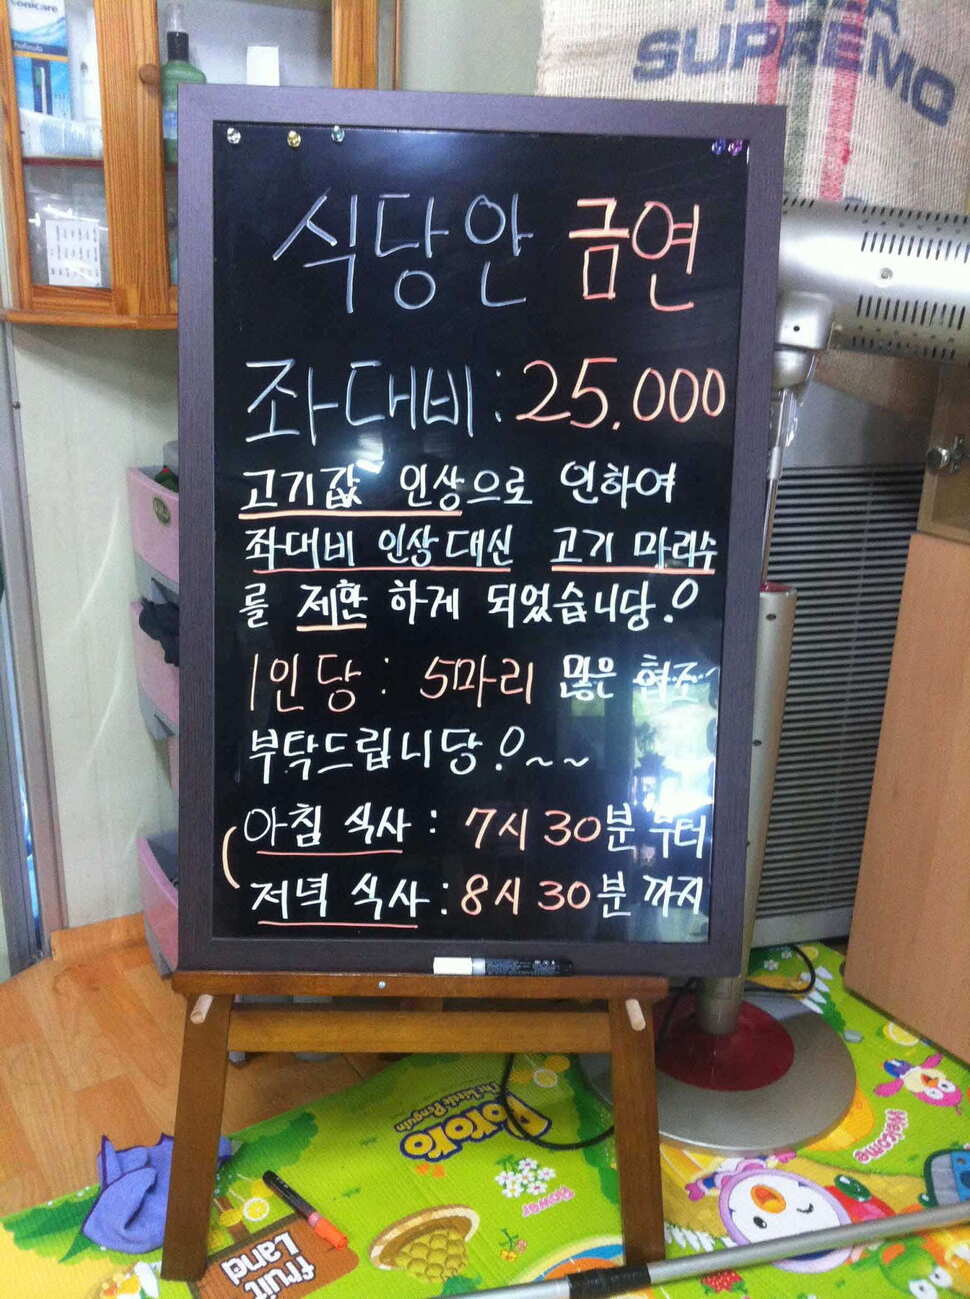 sonicare
SUPREMO
식당안 금연
좌대비 : 25.000
고기값 인상으로 인하여
좌대비 인상대신 고기 마리수
를 제한 하게 되었습니당!
1인당 : 5마리 많은 협조
부탁드립니당!~~
아침 식사 : 7시 30분 부터
저녁 식사 : 8시 30분 까지
PORORO
The Little Penguin
Welcome
flower
fruit
Land